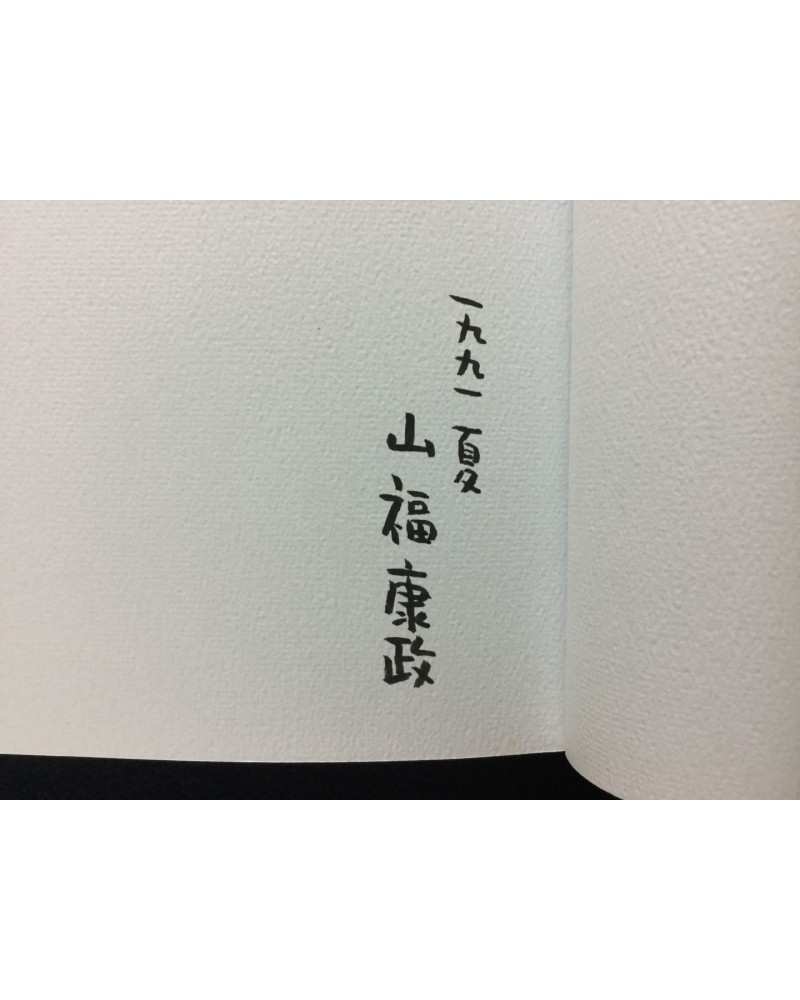 一九九一 夏
山福康政